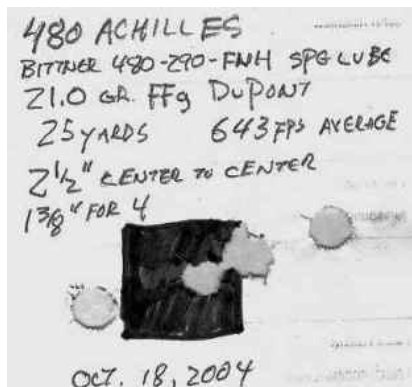 480 ACHILLES
BITTNER 480-290-FNH SPG LUBE
21.0 GR. FFg DUPONT
25 YARDS 643 FPS AVERAGE
2 1/2" CENTER TO CENTER
1 3/8" FOR 4
OCT. 18, 2004